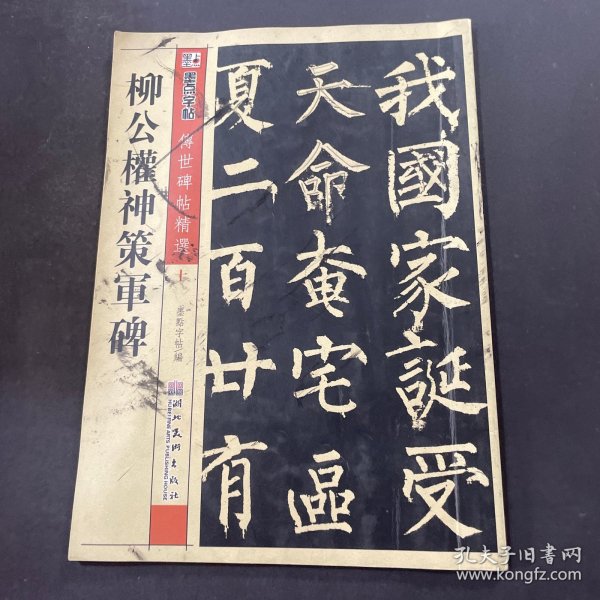 柳公權神策軍碑
墨点
墨点字帖
傳世碑帖精選
十
墨點字帖編
湖北美術出版社
HUBEI FINE ARTS
PUBLISHING HOUSE
我國家誕受
天命奄宅區
夏二百廿有
孔夫子旧書网
www.kongfz.com